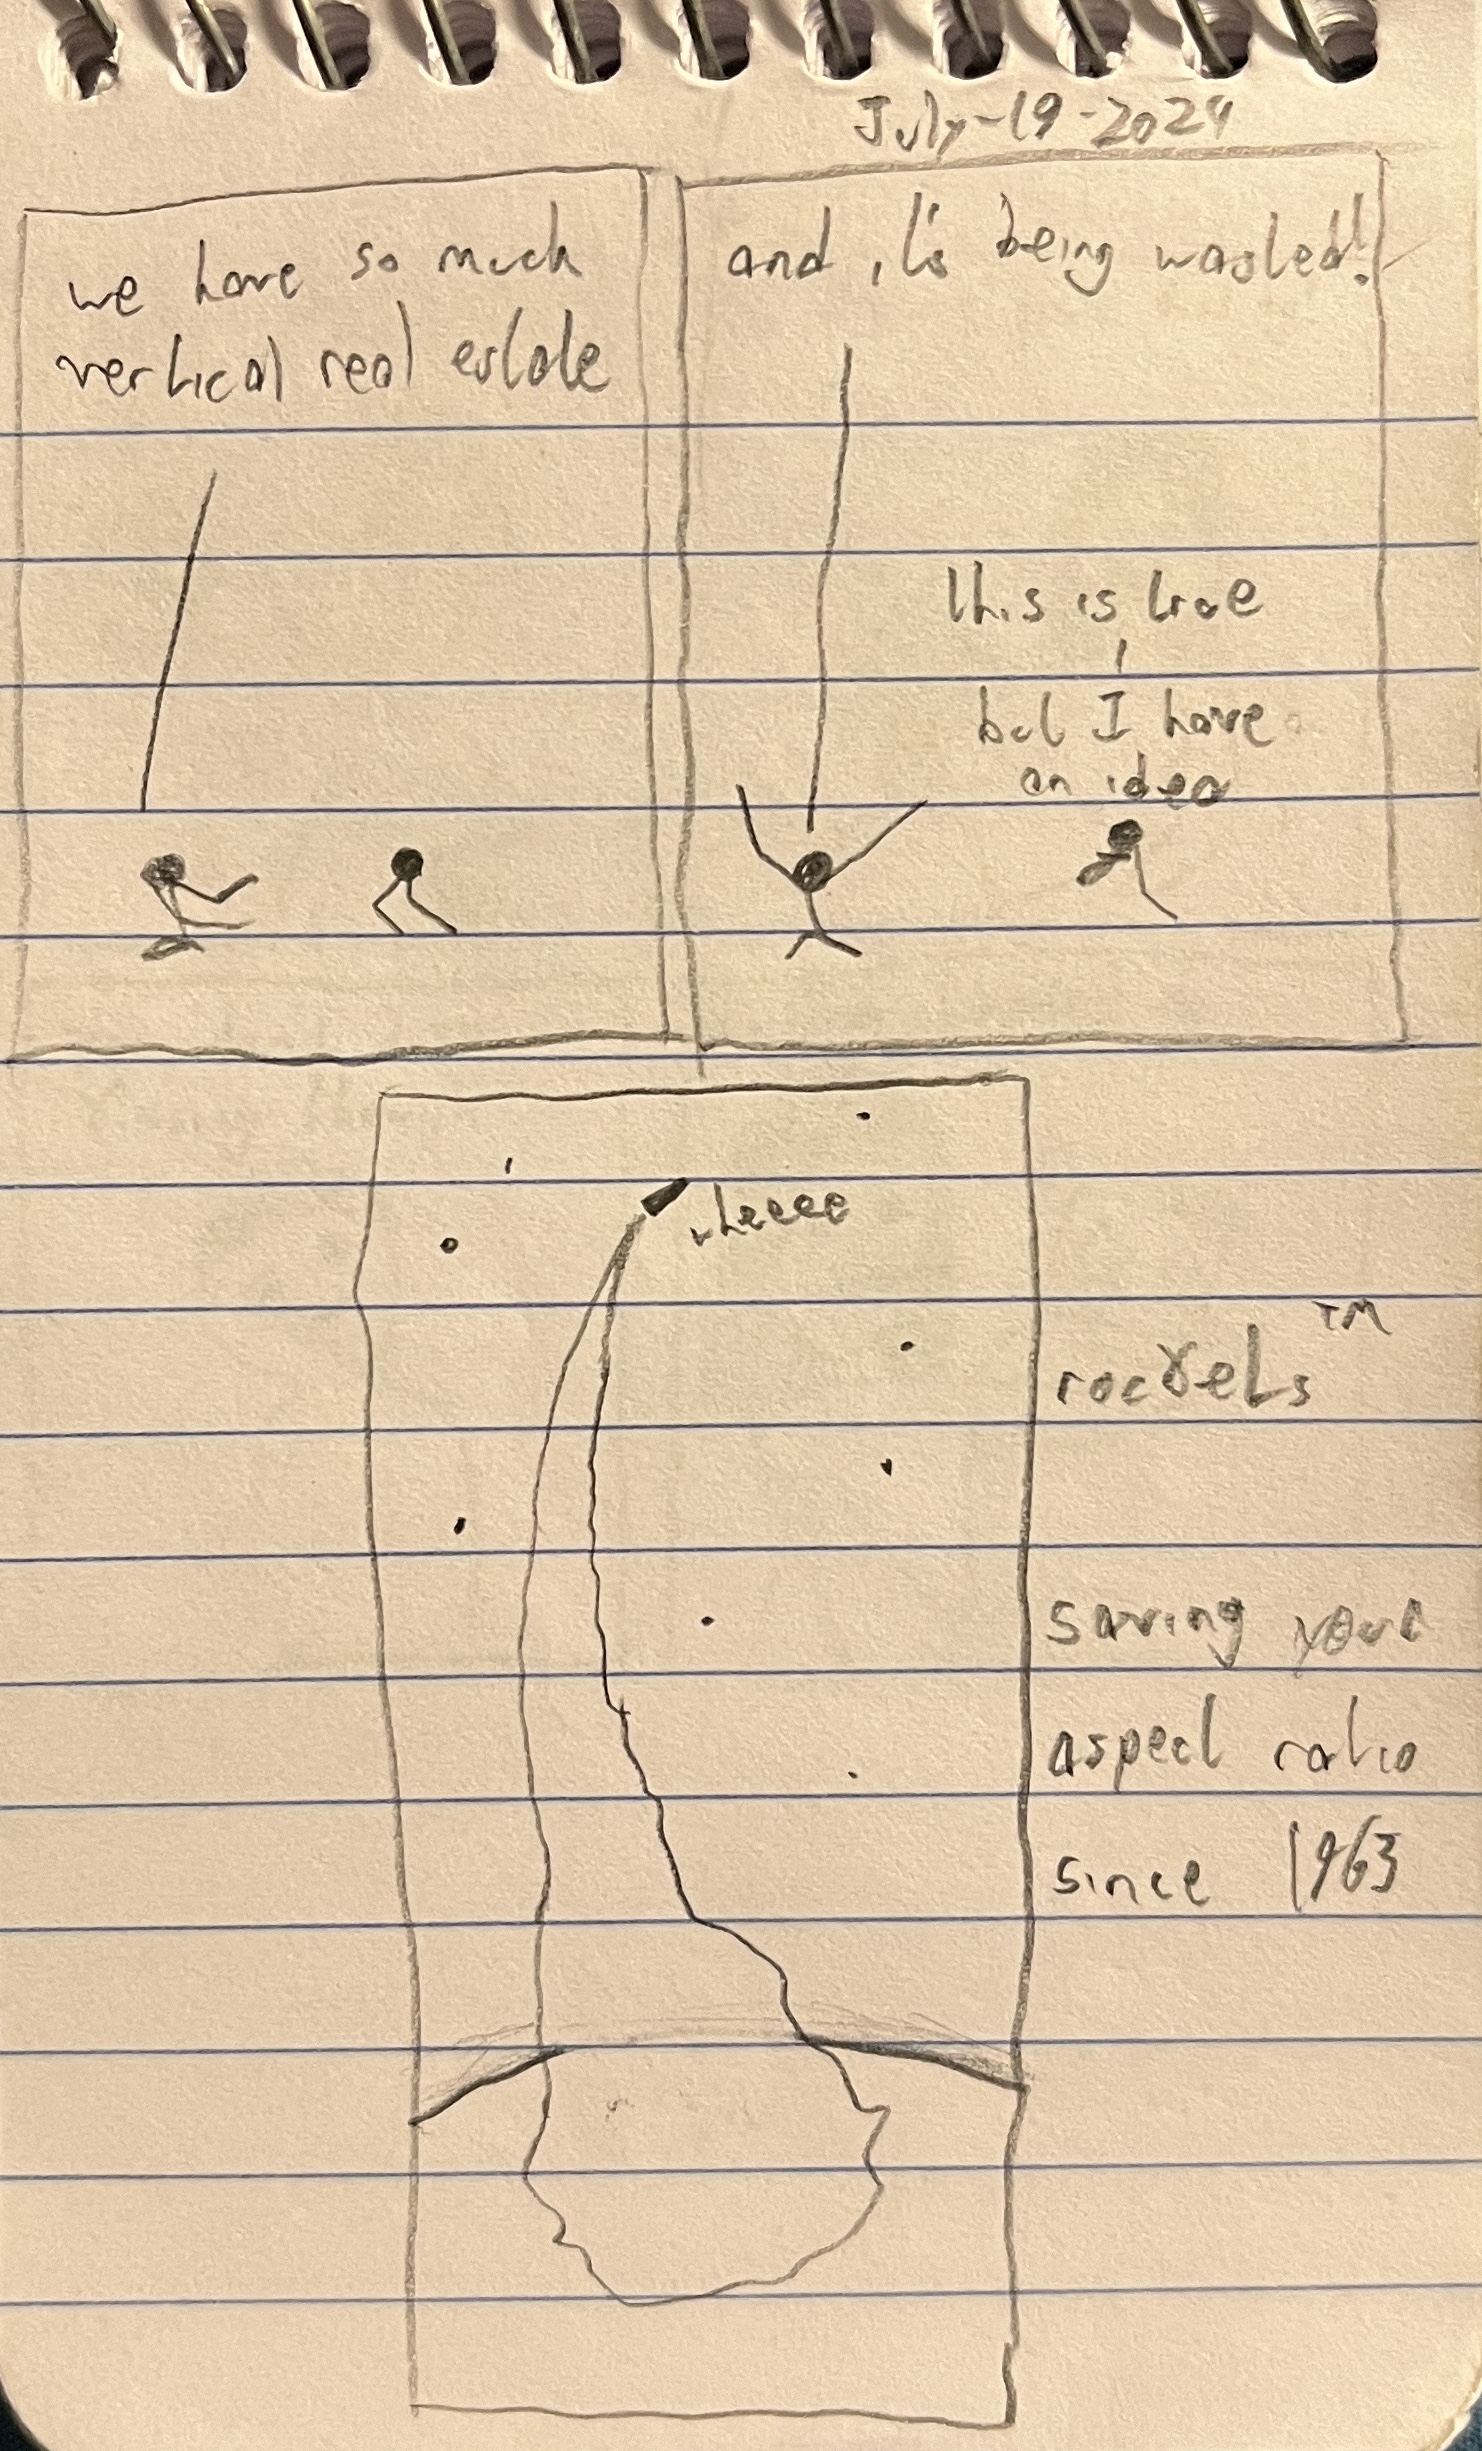 July-19-2024
we have so much
vertical real estate
and it's being wasted!
this is true
but I have
an idea
wheeee
rockets™
saving your
aspect ratio
since 1963